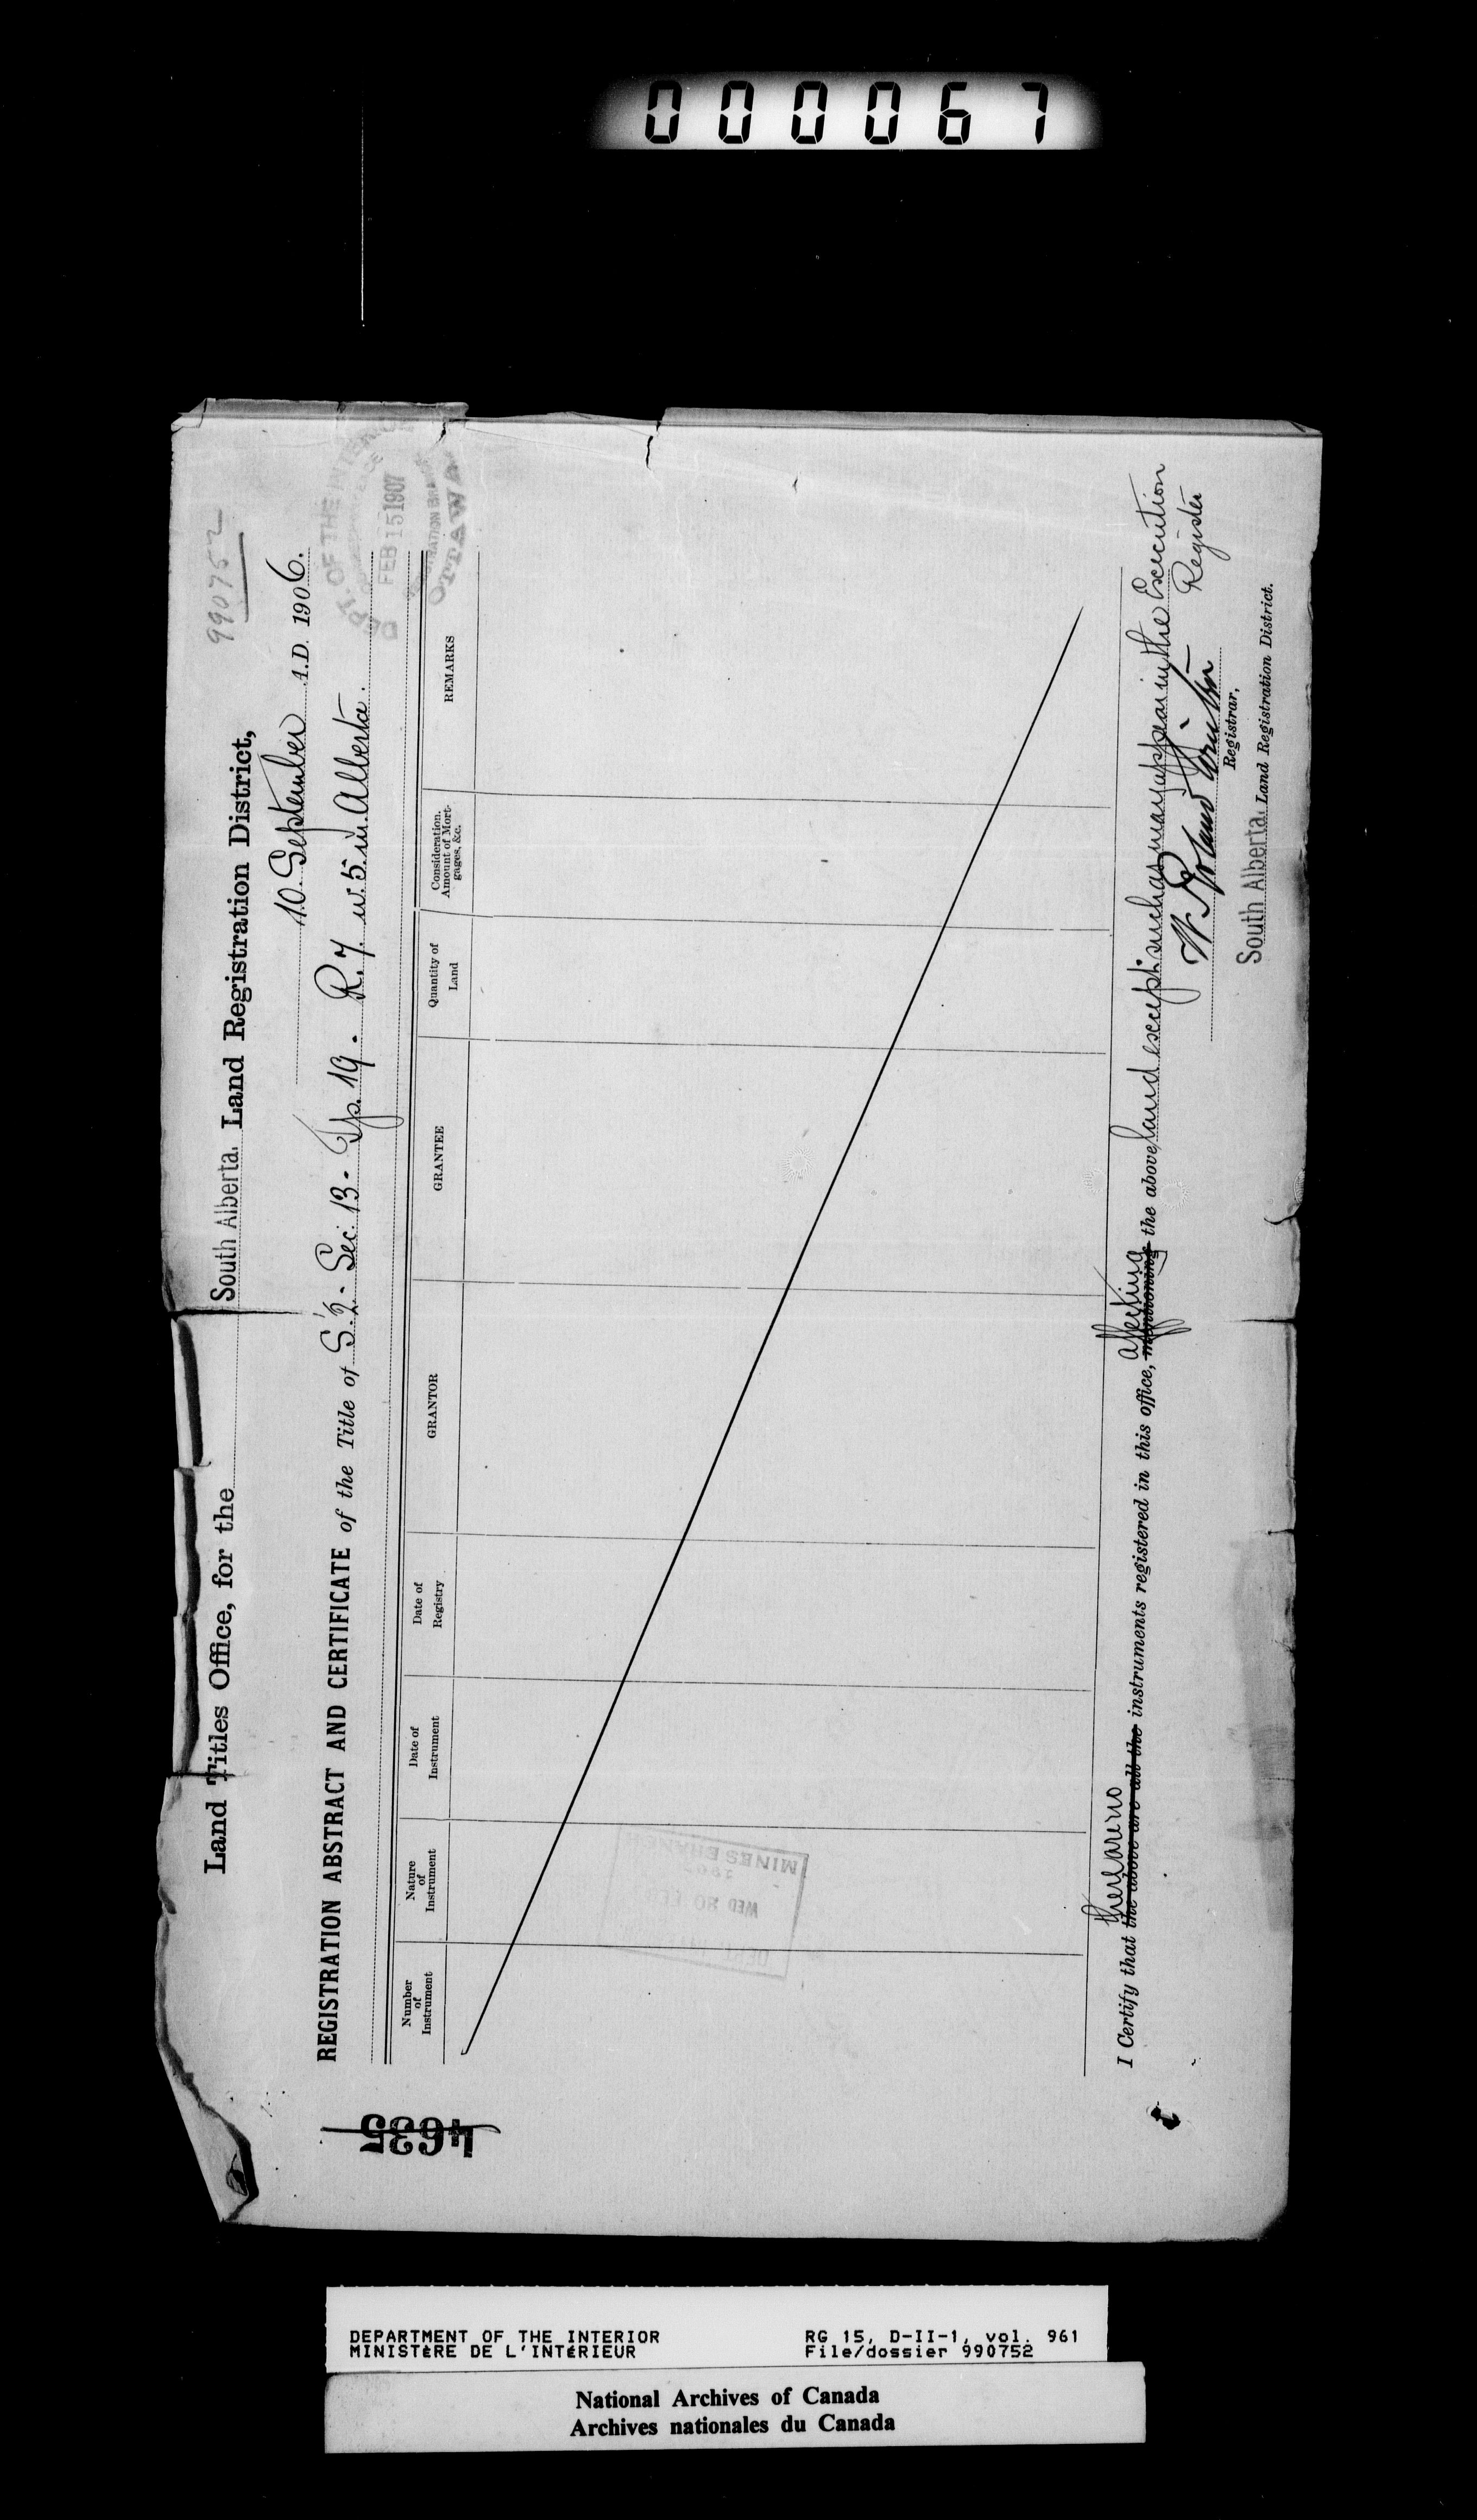 000067
990752
Land Titles Office, for the South Alberta. Land Registration District,
10 September A.D. 1906.
DEPT. OF THE INTERIOR
FEB 15 1907
REGISTRATION BRANCH
OTTAWA
REGISTRATION ABSTRACT AND CERTIFICATE of the Title of S. ½. Sec. 13. Tp. 19. R. 7. w. 5. m. Alberta.
Number of Instrument
Nature of Instrument
Date of Instrument
Date of Registry
GRANTOR
GRANTEE
Quantity of Land
Consideration. Amount of Mortgages, &c.
REMARKS
4635
MINES BRANCH
1907
WED 20 FEB
DEPT. INTERIOR
there are no affecting
I Certify that the above are all the instruments registered in this office, mentioning the above land except such as may appear in the Execution
Register
W. Roland
Registrar,
South Alberta. Land Registration District.
DEPARTMENT OF THE INTERIOR RG 15, D-II-1, vol. 961
MINISTÈRE DE L'INTÉRIEUR File/dossier 990752
National Archives of Canada
Archives nationales du Canada